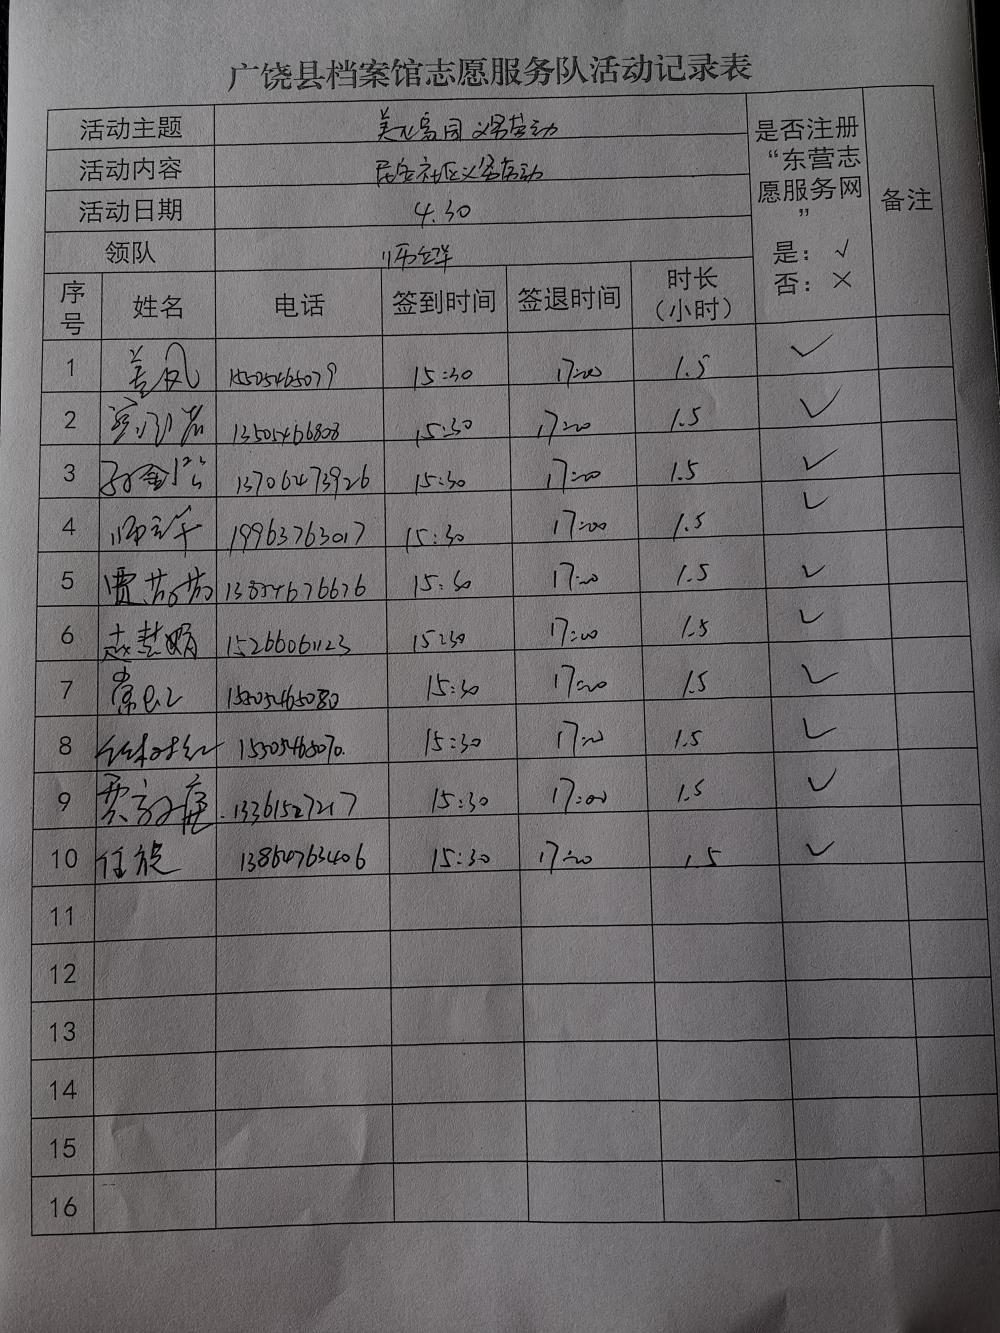 广饶县档案馆志愿服务队活动记录表
活动主题 美化家园 义务劳动
活动内容 民安社区义务劳动
活动日期 4.30
领队
是否注册
“东营志
愿服务网
”
是：√
否：×
备注
序号 姓名 电话 签到时间 签退时间 时长（小时）
1 15505465079 15:30 17:00 1.5 ✓
2 13505466808 15:30 17:00 1.5 ✓
3 13706473926 15:30 17:00 1.5 ✓
4 19963763017 15:30 17:00 1.5 ✓
5 贾芬芬 13854676676 15:30 17:00 1.5 ✓
6 赵慧娟 15266061123 15:30 17:00 1.5 ✓
7 15505465080 15:30 17:00 1.5 ✓
8 15505465070 15:30 17:00 1.5 ✓
9 13361527217 15:30 17:00 1.5 ✓
10 任旋 13864763406 15:30 17:00 1.5 ✓
11
12
13
14
15
16